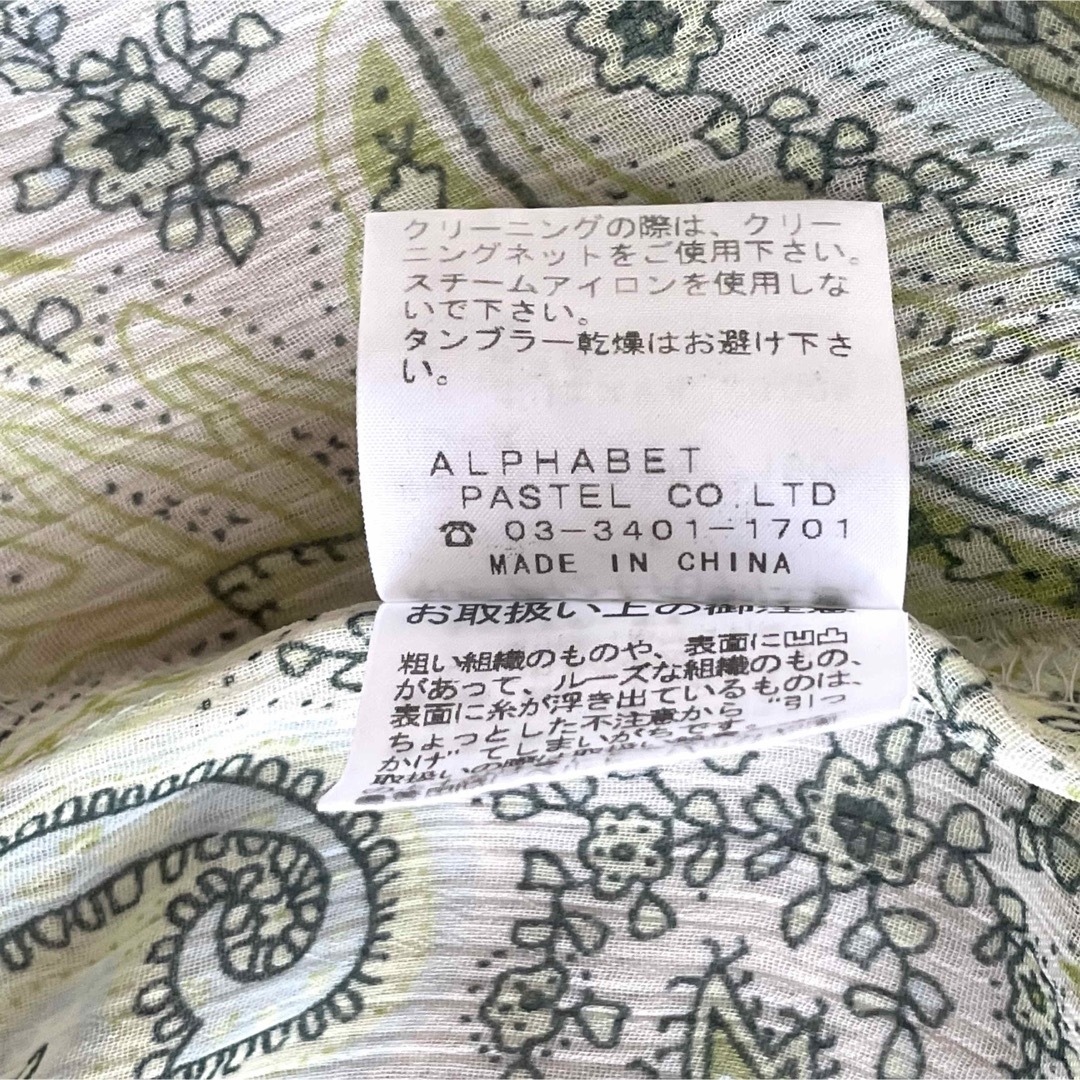 クリーニングの際は、クリー
ニングネットをご使用下さい。
スチームアイロンを使用しな
いで下さい。
タンブラー乾燥はお避け下さ
い。
ALPHABET
PASTEL CO.LTD
☎ 03-3401-1701
MADE IN CHINA
お取扱い上の御注意
粗い組織のものや、表面に凹凸
があって、ルーズな組織のもの、
表面に糸が浮き出ているものは、
ちょっとした不注意から“引っ
かけ”てしまいがちです。
取扱いの際は